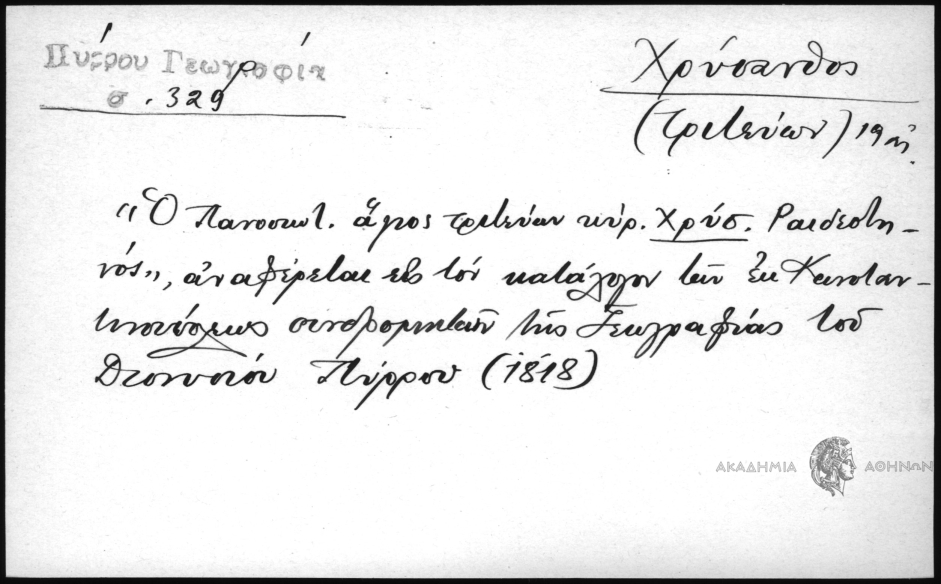 Πύρρου Γεωγραφία
σ. 329
Χρύσανθος
(Πρεβεύων) 19
"Ὁ Πανοσιωτ. ἅγιος πρωτεύων κύρ. Χρύσ. Ραιδεστη-
νός", ἀναφέρεται εἰς τὸν κατάλογον τῶν ἐκ Κωνσταν-
τινουπόλεως συνδρομητῶν τῆς Γεωγραφίας τοῦ
Διονυσίου Πύρρου (1818)
ΑΚΑΔΗΜΙΑ ΑΘΗΝΩΝ